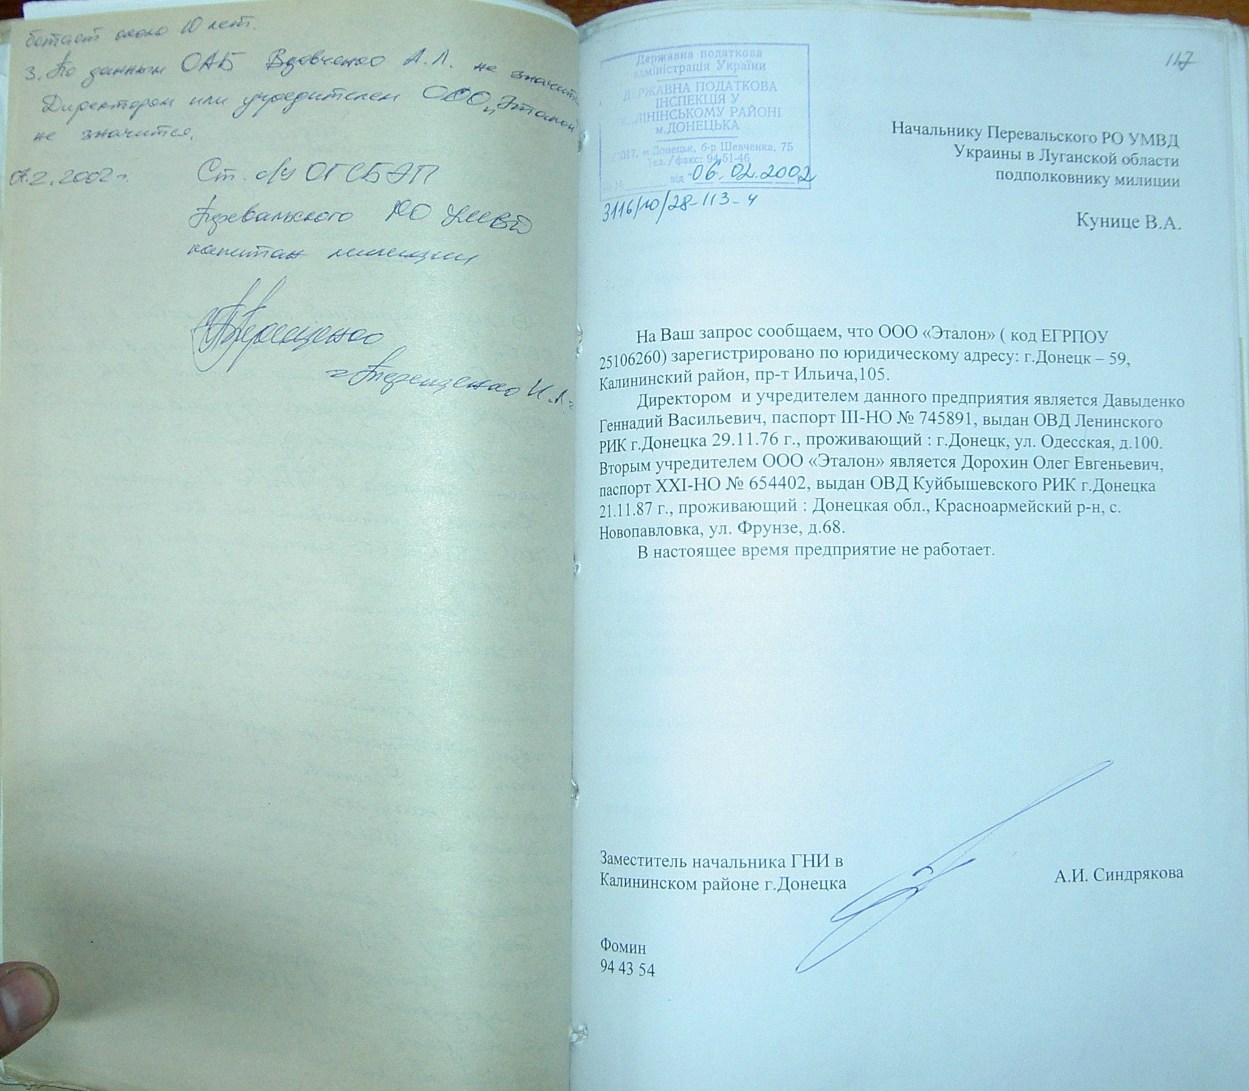 ботает около 10 лет.
3. По данным ОАБ Вдовченко А.Л. не значится
Директором или учредителем ООО „Эталон"
не значится.
2.2002г. Ст. о/у ОГСБЭП
Перевальского РО УМВД
капитан милиции
Терещенко И.А.
117
Державна податкова
адміністрація України
ДЕРЖАВНА ПОДАТКОВА
ІНСПЕКЦІЯ У
КАЛІНІНСЬКОМУ РАЙОНІ
м.ДОНЕЦЬКА
м. Донецьк, б-р Шевченка, 75
Тел./факс: 94-51-46
від 06.02.2002
3116/10/28-113-4
Начальнику Перевальского РО УМВД
Украины в Луганской области
подполковнику милиции
Кунице В.А.
На Ваш запрос сообщаем, что ООО «Эталон» ( код ЕГРПОУ
25106260) зарегистрировано по юридическому адресу: г.Донецк – 59,
Калининский район, пр-т Ильича,105.
Директором и учредителем данного предприятия является Давыденко
Геннадий Васильевич, паспорт III-НО № 745891, выдан ОВД Ленинского
РИК г.Донецка 29.11.76 г., проживающий : г.Донецк, ул. Одесская, д.100.
Вторым учредителем ООО «Эталон» является Дорохин Олег Евгеньевич,
паспорт XXI-НО № 654402, выдан ОВД Куйбышевского РИК г.Донецка
21.11.87 г., проживающий : Донецкая обл., Красноармейский р-н, с.
Новопавловка, ул. Фрунзе, д.68.
В настоящее время предприятие не работает.
Заместитель начальника ГНИ в
Калининском районе г.Донецка
А.И. Синдрякова
Фомин
94 43 54